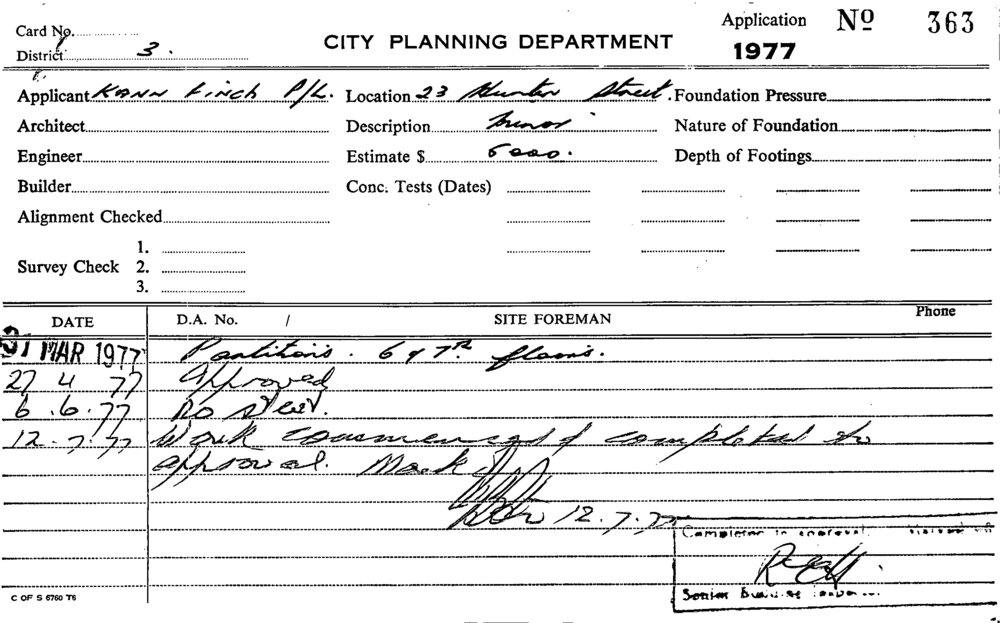 Card No. Application Nº 363
District 3. CITY PLANNING DEPARTMENT 1977
Applicant KANN FINCH P/L. Location 23 Hunter Street. Foundation Pressure
Architect Description Minor Nature of Foundation
Engineer Estimate $ 6000. Depth of Footings
Builder Conc. Tests (Dates)
Alignment Checked
1.
Survey Check 2.
3.
DATE D.A. No. / SITE FOREMAN Phone
MAR 1977 Partitions. 6 & 7th floors.
27 4 77 Approved
6.6.77 No start.
12.7.77 Work commenced & completed to
approval. Mack
12.7.77
Completed to approval.
Senior Building
C OF S 6760 T6